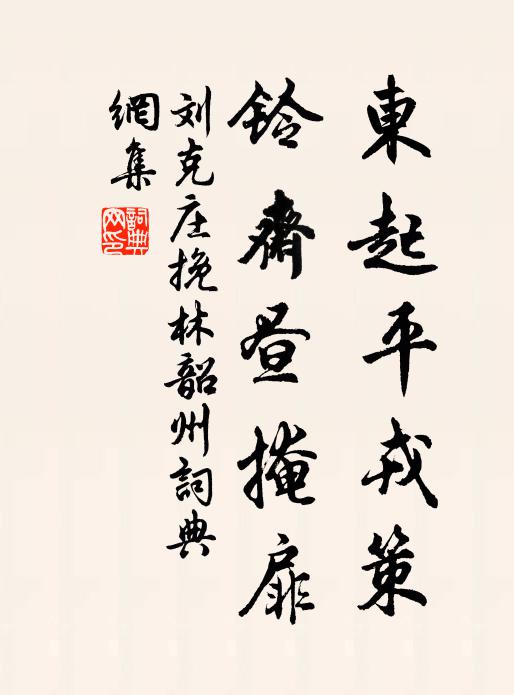 東起平戎策
鈴齋昼掩扉
刘克庄挽林韶州詞典
網集
詞典网印